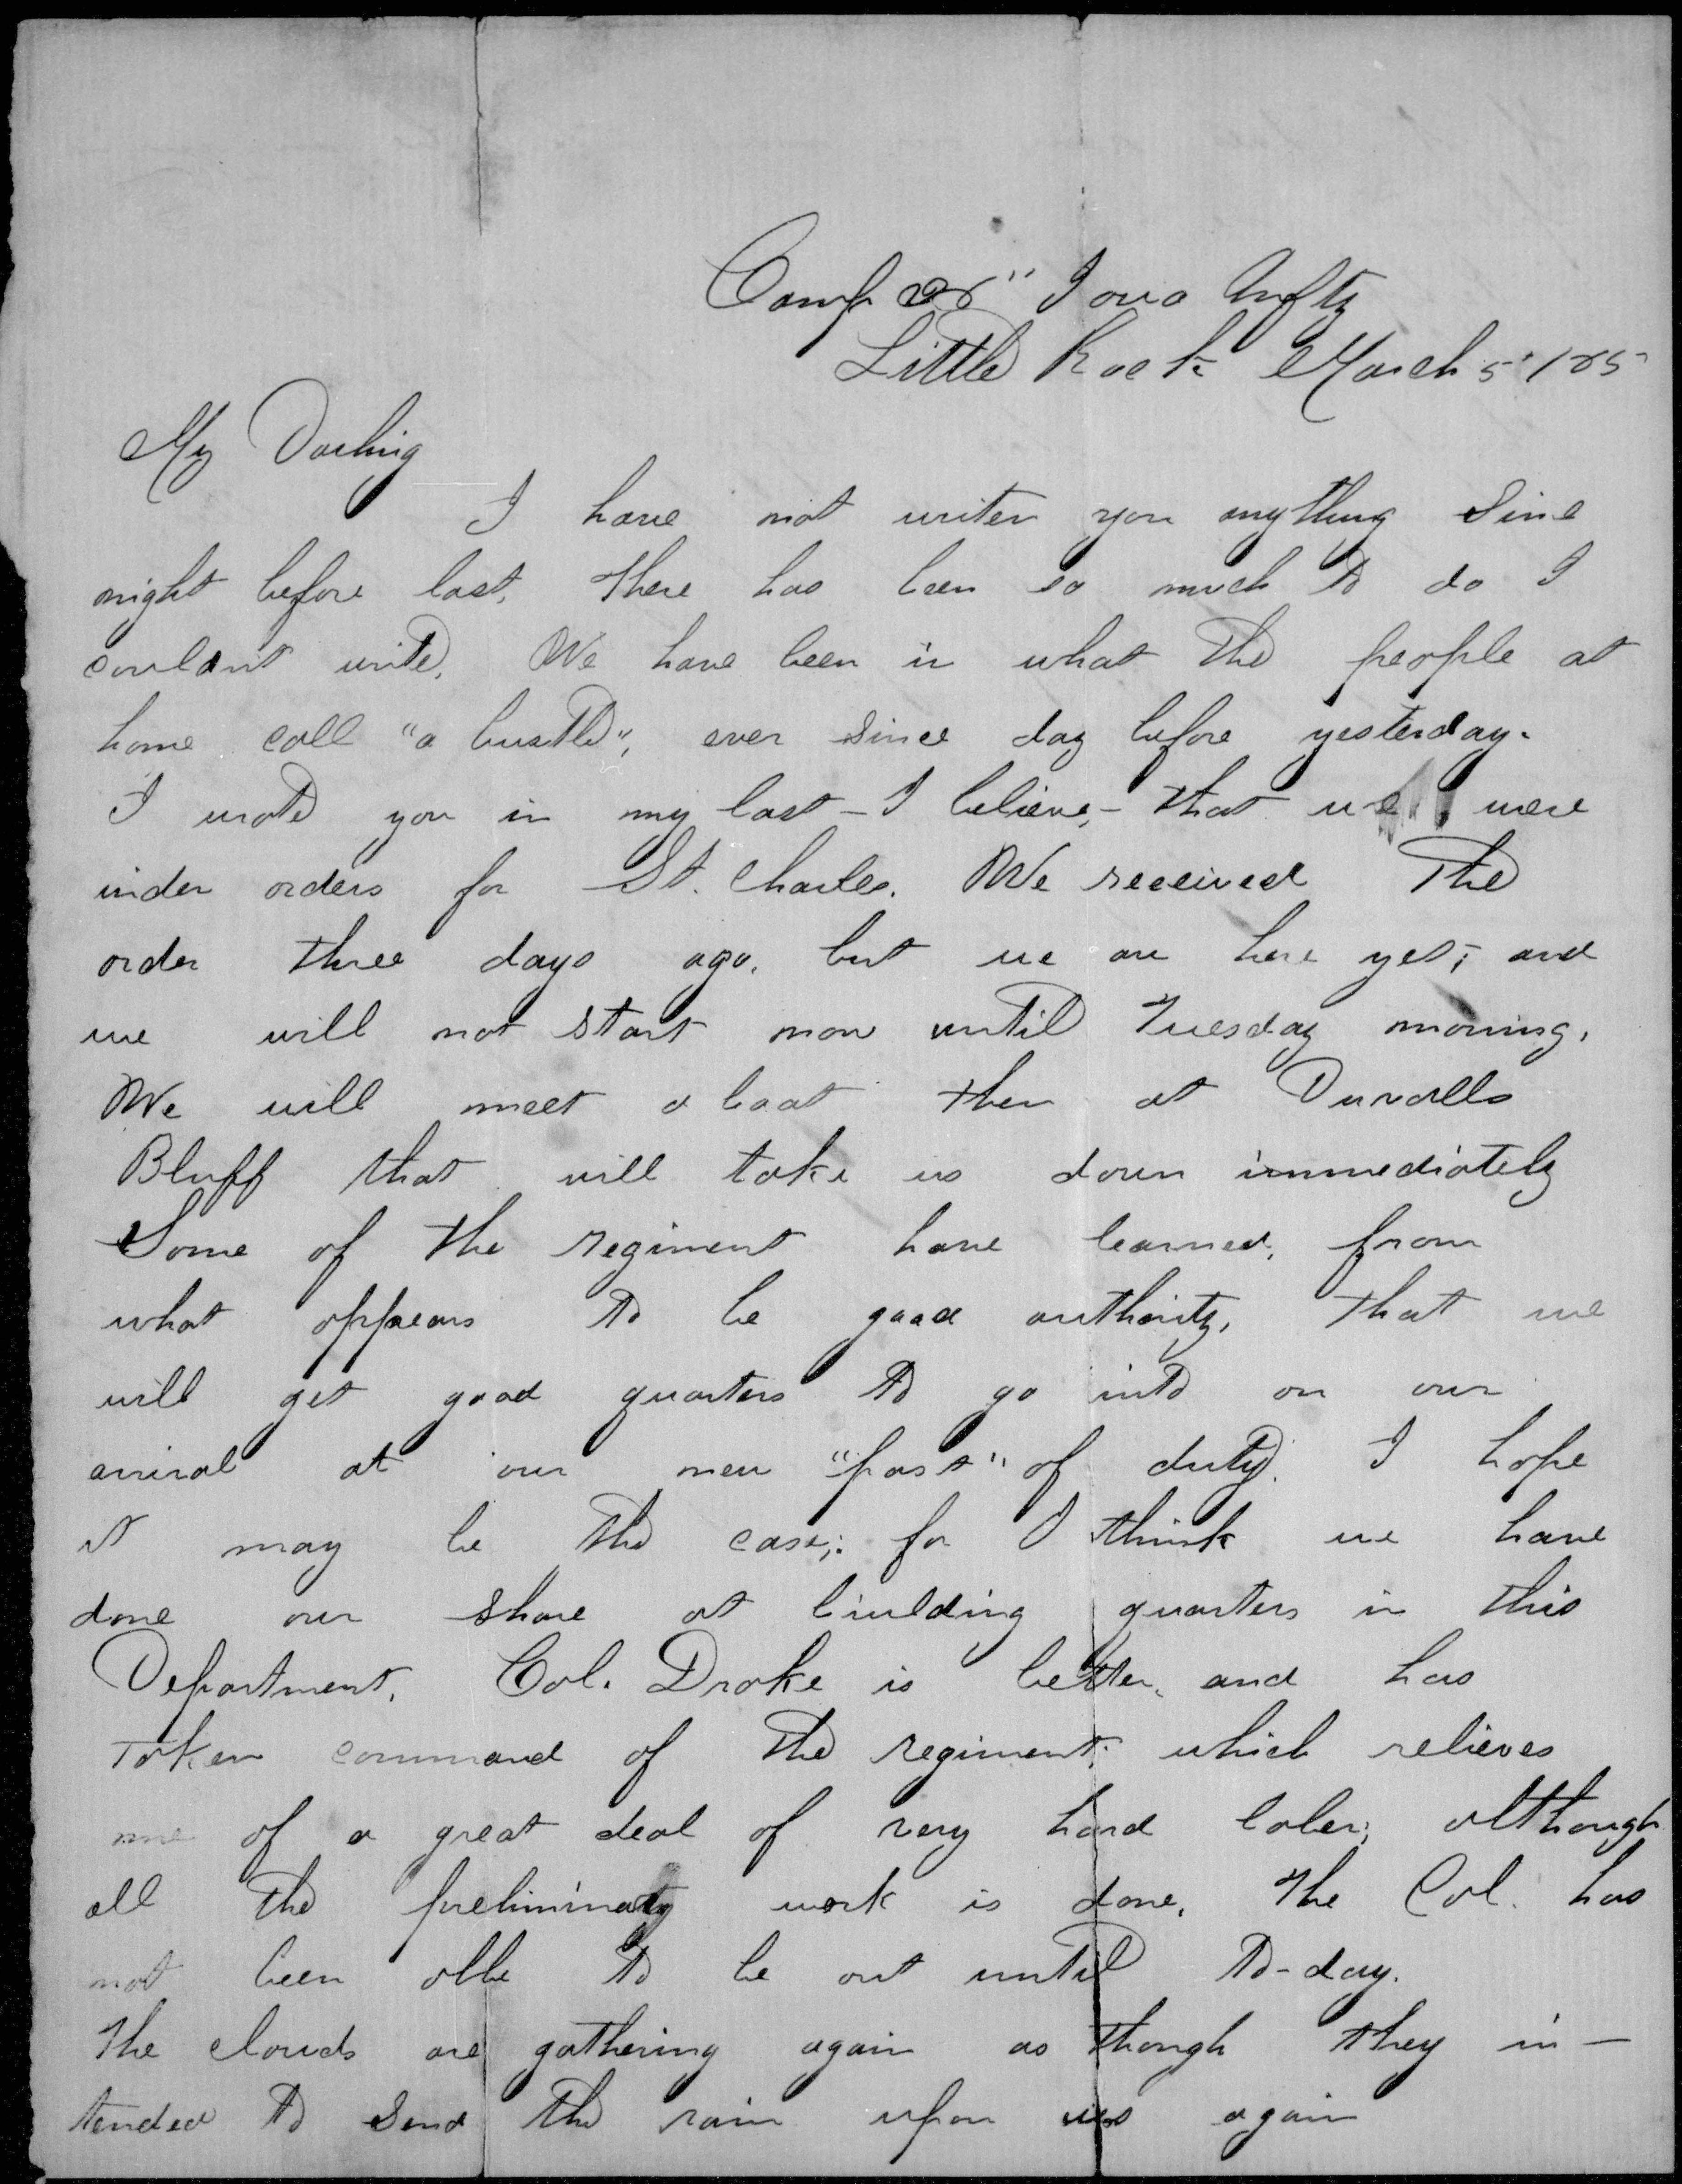 Camp 36" Iowa Infty
Little Rock March 5" /65
My Darling
I have not writen you anything since
night before last, There has been so much to do I
couldn't write. We have been in what the people at
home call "a bustle", ever since day before yesterday.
I wrote you in my last – I believe, – that we were
under orders for St. Charles. We received the
order three days ago, but we are here yet; and
we will not start now until Tuesday morning.
We will meet a boat then at Duvalls
Bluff that will take us down immediately
Some of the regiment have learned, from
what appears to be good authority, that we
will get good quarters to go into on our
arrival at our new "post" of duty. I hope
it may be the case; for I think we have
done our share at building quarters in this
Department. Col. Drake is better, and has
taken command of the regiment; which relieves
me of a great deal of very hard labor; although
all the preliminary work is done. The Col. has
not been able to be out until to-day.
The clouds are gathering again as though they in–
tended to send the rain upon us again